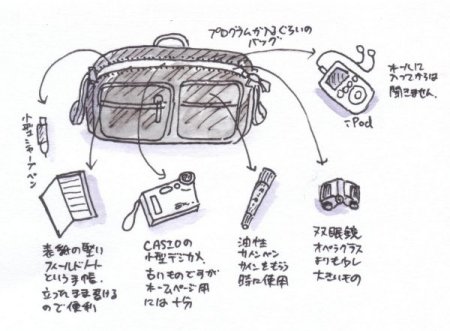 プログラムが入るぐらいの
バッグ
ホールに
入ってからは
聞きません。
iPod
小型シャープペン
表紙の堅い
フィールドノート
という手帳、
立ったまま書ける
ので便利
CASIOの
小型デジカメ、
古いものですが
ホームページ用
には十分
油性
サインペン
サインをもらう
時に使用
双眼鏡
オペラグラス
よりも少し
大きいもの